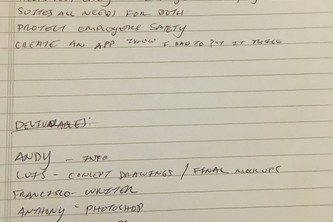 SUITES ALL NEEDS FOR BOTH
PROTECT EMPLOYERS SAFETY
CREATE AN APP I HAD TO PUT IT TWICE
DELIVERABLE:
ANDY - INFO
LUIS - CONCEPT DRAWINGS / FINAL MOCKUPS
FRANCISCO - WRITER
ANTHONY - PHOTOSHOP